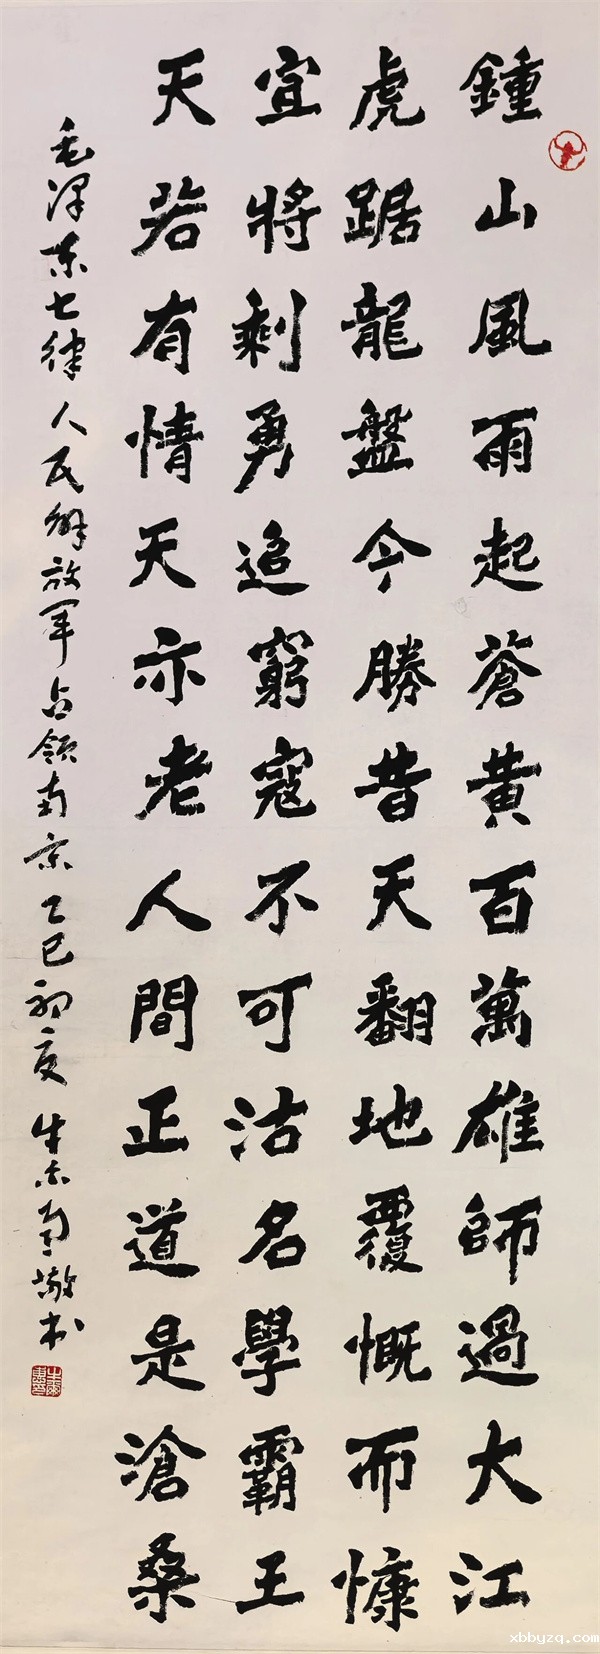 鍾山風雨起蒼黄百萬雄師過大江
虎踞龍盤今勝昔天翻地覆慨而慷
宜將剩勇追窮寇不可沽名學霸王
天若有情天亦老人間正道是滄桑
毛泽东七律人民解放军占领南京乙巳初夏 敬书
xbbyzq.com